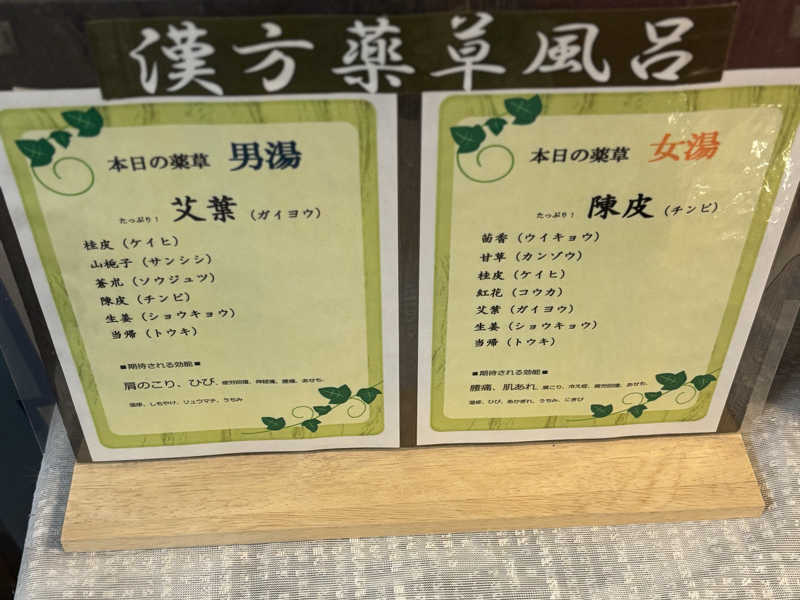 漢方薬草風呂
本日の薬草 男湯
たっぷり! 艾葉 (ガイヨウ)
桂皮 (ケイヒ)
山梔子 (サンシシ)
蒼朮 (ソウジュツ)
陳皮 (チンピ)
生姜 (ショウキョウ)
当帰 (トウキ)
■期待される効能■
肩のこり、ひび、疲労回復、神経痛、腰痛、あせも、
湿疹、しもやけ、リュウマチ、うちみ
本日の薬草 女湯
たっぷり! 陳皮 (チンピ)
茴香 (ウイキョウ)
甘草 (カンゾウ)
桂皮 (ケイヒ)
紅花 (コウカ)
艾葉 (ガイヨウ)
生姜 (ショウキョウ)
当帰 (トウキ)
■期待される効能■
腰痛、肌あれ、肩こり、冷え症、疲労回復、あせも、
湿疹、ひび、あかぎれ、うちみ、にきび